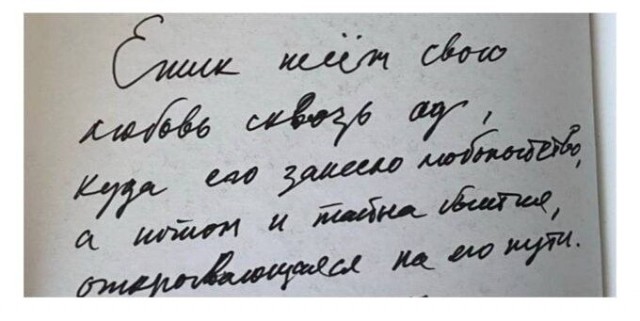 Ёжик несёт свою
любовь сквозь ад,
куда его занесло любопытство,
а потом и тайна бытия,
открывающаяся на его пути.